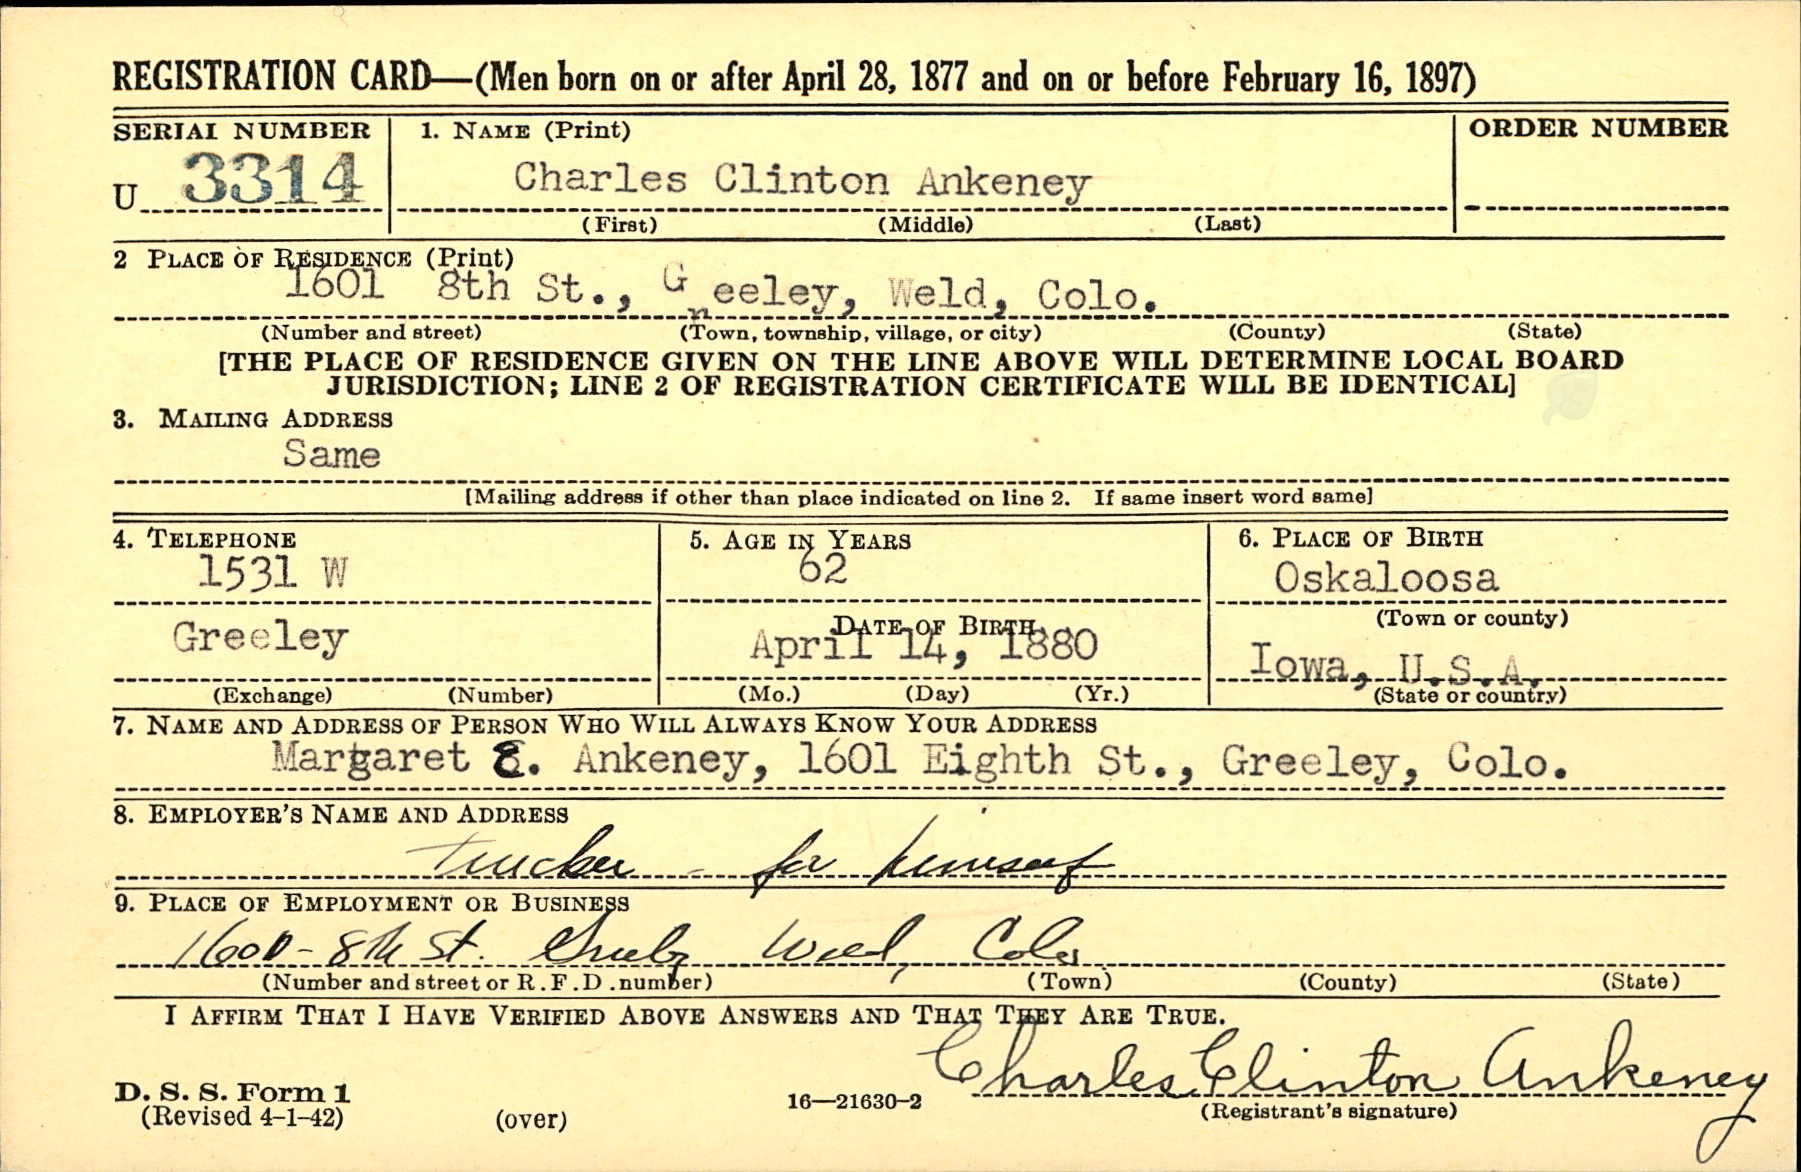 REGISTRATION CARD—(Men born on or after April 28, 1877 and on or before February 16, 1897)
SERIAL NUMBER 1. NAME (Print) ORDER NUMBER
U 3314 Charles Clinton Ankeney
(First) (Middle) (Last)
2 PLACE OF RESIDENCE (Print)
1601 8th St., Greeley, Weld, Colo.
(Number and street) (Town, township, village, or city) (County) (State)
[THE PLACE OF RESIDENCE GIVEN ON THE LINE ABOVE WILL DETERMINE LOCAL BOARD
JURISDICTION; LINE 2 OF REGISTRATION CERTIFICATE WILL BE IDENTICAL]
3. MAILING ADDRESS
Same
[Mailing address if other than place indicated on line 2. If same insert word same]
4. TELEPHONE 5. AGE IN YEARS 6. PLACE OF BIRTH
1531 W 62 Oskaloosa
DATE OF BIRTH (Town or county)
Greeley April 14, 1880 Iowa, U.S.A.
(Exchange) (Number) (Mo.) (Day) (Yr.) (State or country)
7. NAME AND ADDRESS OF PERSON WHO WILL ALWAYS KNOW YOUR ADDRESS
Margaret E. Ankeney, 1601 Eighth St., Greeley, Colo.
8. EMPLOYER'S NAME AND ADDRESS
Trucker - for himself
9. PLACE OF EMPLOYMENT OR BUSINESS
1600 - 8th St. Greeley Weld, Colo
(Number and street or R.F.D. number) (Town) (County) (State)
I AFFIRM THAT I HAVE VERIFIED ABOVE ANSWERS AND THAT THEY ARE TRUE.
Charles Clinton Ankeney
D. S. S. Form 1
(Revised 4-1-42) (over) 16—21630-2 (Registrant's signature)